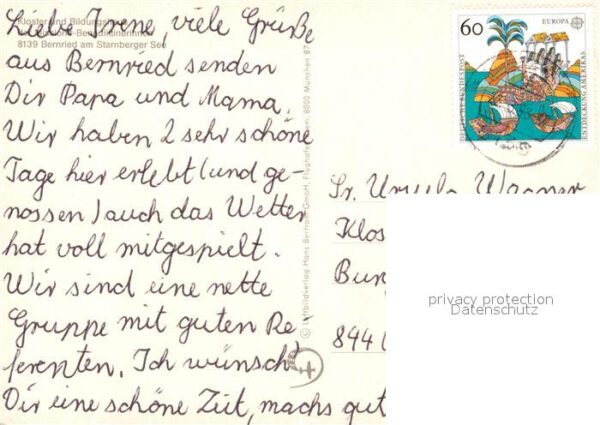 Kloster und Bildungshaus
der Missions-Benediktinerinnen
8139 Bernried am Starnberger See
Liebe Irene, viele Grüße
aus Bernried senden
Dir Papa und Mama.
Wir haben 2 sehr schöne
Tage hier erlebt (und ge-
nossen) auch das Wetter
hat voll mitgespielt.
Wir sind eine nette
Gruppe mit guten Re-
ferenten. Ich wünsch
Dir eine schöne Zeit, machs gut
© Luftbildverlag Hans Bertram GmbH, Flughafen, 8000 München 87
60
EUROPA
DEUTSCHE BUNDESPOST
ENTDECKUNG AMERIKAS
Sr. Ursula Wagner
Klos
Bur
844
privacy protection
Datenschutz